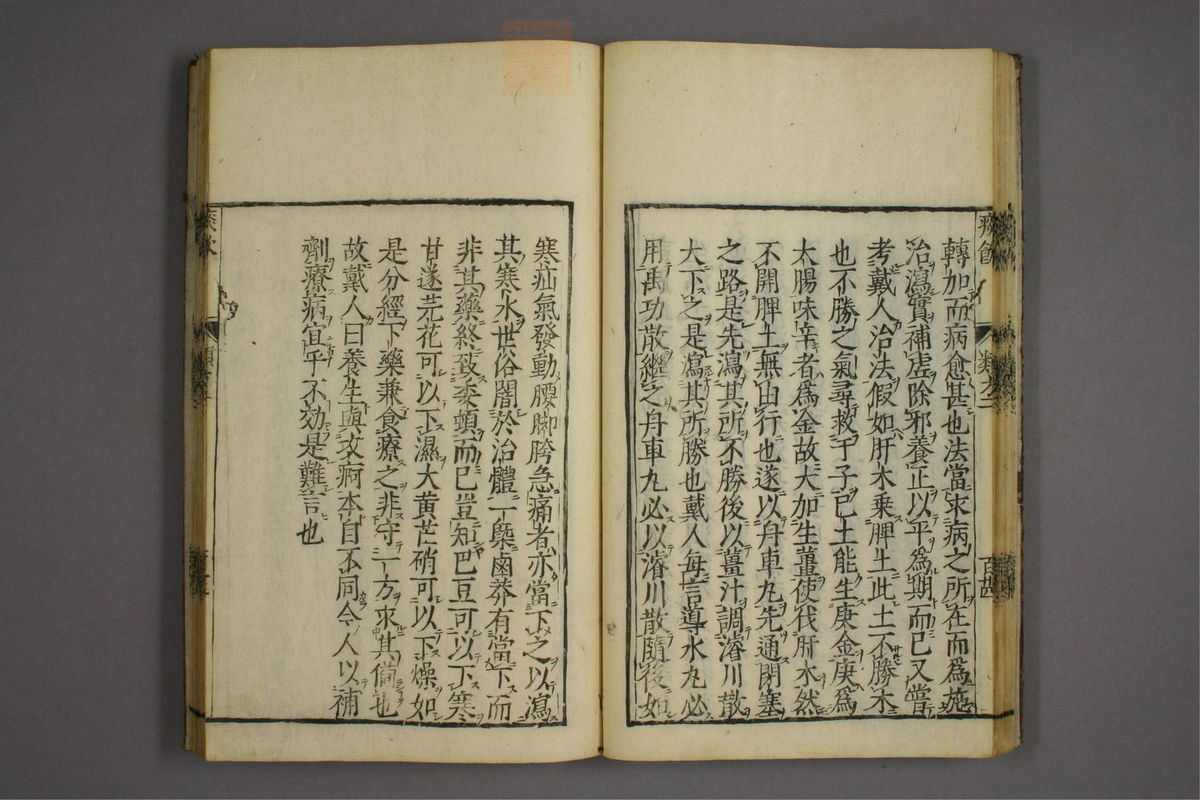 轉加而病愈甚也法當求病之所在而爲施
治瀉實補虚除邪養正以平爲期而已又嘗
考戴人治法假如肝木乗脾土此土不勝木
也不勝之氣尋救于子已土能生庚金庚爲
大腸味辛者爲金故大加生薑使伐肝木然
不開脾土無由行也遂以舟車丸先通閉塞
之路是先瀉其所不勝後以薑汁調濬川散
大下之是瀉其所勝也戴人毎言導水丸必
用禹功散繼之舟車丸必以濬川散隨後如
寒疝氣發動腰脚胯急痛者亦當下之以瀉
其寒水世俗闇於治體一槩鹵莽有當下而
非其藥終致委頓而已豈知巴豆可以下寒
甘遂芫花可以下濕大黄芒硝可以下燥如
是分經下藥兼食療之非守一方求其備也
故戴人曰養生與攻痾本自不同今人以補
劑療病宜乎不効是難言也